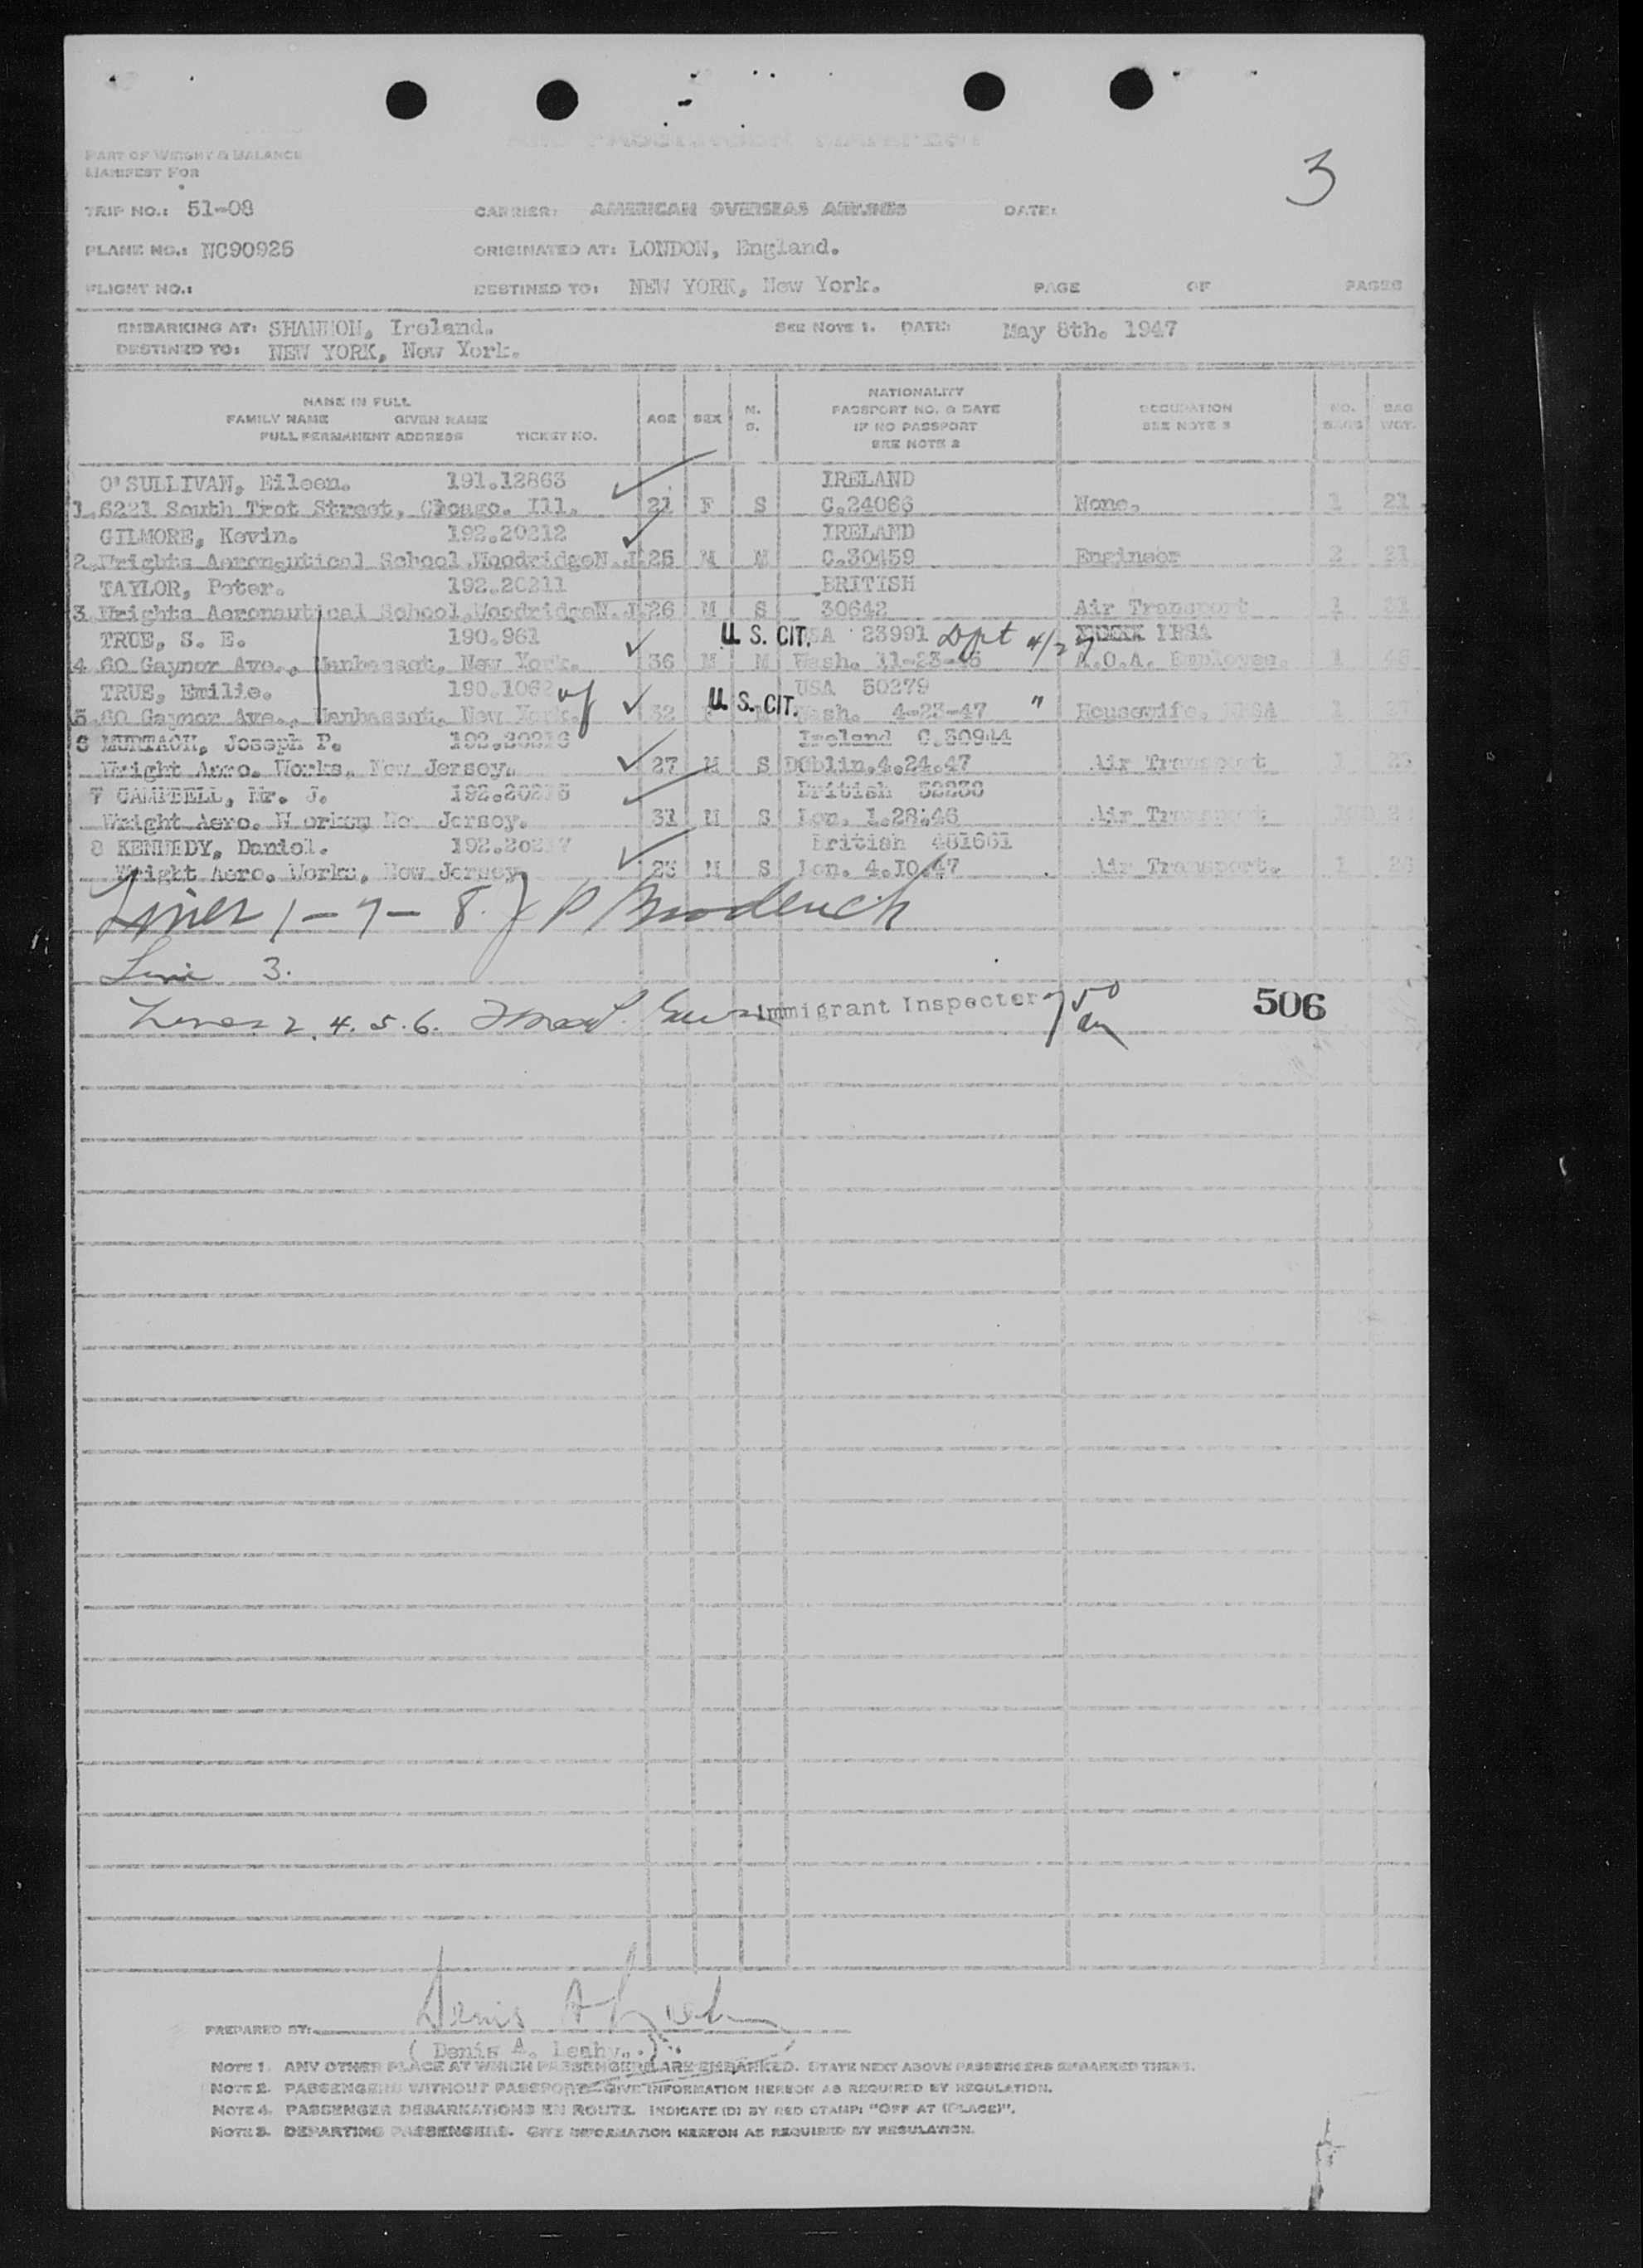 PART OF WEIGHT & BALANCE
MANIFEST FOR
3
TRIP NO.: 51-08 CARRIER: AMERICAN OVERSEAS AIRLINES DATE:
PLANE NO.: NC90925 ORIGINATED AT: LONDON, England.
FLIGHT NO.: DESTINED TO: NEW YORK, New York. PAGE OF PAGES
EMBARKING AT: SHANNON, Ireland. SEE NOTE 1. DATE: May 8th. 1947
DESTINED TO: NEW YORK, New York.
NAME IN FULL
FAMILY NAME GIVEN NAME
FULL PERMANENT ADDRESS TICKET NO.
AGE SEX M. S.
NATIONALITY
PASSPORT NO. & DATE
IF NO PASSPORT
SEE NOTE 2
OCCUPATION
SEE NOTE 3
NO. BAGS BAG WGT.
O'SULLIVAN, Eileen. 191.12863 IRELAND
1.6221 South Trot Street, Chcago. Ill. 21 F S C.24066 None. 1 21
GILMORE, Kevin. 192.20212 IRELAND
2.Wrights Aeronautical School,WoodridgeN.J. 25 M M C.30459 Engineer 2 21
TAYLOR, Peter. 192.20211 BRITISH
3 Wrights Aeronautical School,WoodridgeN.J. 26 M S 30642 Air Transport 1 31
TRUE, S. E. 190.961 U.S. CIT. USA 23991 Dpt 4/27
4 60 Gaynor Ave., Manhasset, New York. 36 M M Wash. 11-23-46 A.O.A. Employee. 1 46
TRUE, Emilie. 190.1062 U.S. CIT. USA 50279
5.60 Gaynor Ave., Manhasset, New York. 32 Wash. 4-23-47 " Housewife. 1
6 MURTAGH, Joseph P. 192.20216 Ireland C.30944
Wright Aero. Works, New Jersey. 27 M S Dublin.4.24.47 Air Transport 1
7 CAMPBELL, Mr. J. 192.20215 British 52230
Wright Aero. Jersey. 31 M S Lon. 1.28.46 Air Transport
8 KENNEDY, Daniel. 192.20217 British 481661
Wright Aero. Works, New Jersey. 23 M S Lon. 4.10.47 Air Transport. 1
Lines 1-7-8. J P Broderick
Line 3.
Lines 2, 4. 5. 6. Immigrant Inspector 7 50 am 506
PREPARED BY: Denis A Leahy
( Denis A. Leahy.. )
NOTE 1. ANY OTHER PLACE AT WHICH PASSENGERS ARE EMBARKED. STATE NEXT ABOVE PASSENGERS EMBARKED THERE.
NOTE 2. PASSENGERS WITHOUT PASSPORT—GIVE INFORMATION HEREON AS REQUIRED BY REGULATION.
NOTE 4. PASSENGER DEBARKATIONS EN ROUTE. INDICATE (D) BY RED STAMP: "OFF AT (PLACE)".
NOTE 3. DEPARTING PASSENGERS. GIVE INFORMATION HEREON AS REQUIRED BY REGULATION.